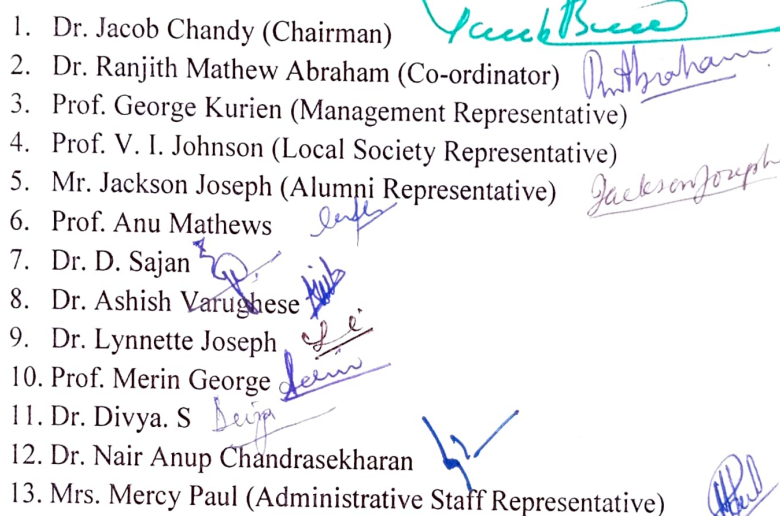 1. Dr. Jacob Chandy (Chairman)
2. Dr. Ranjith Mathew Abraham (Co-ordinator) RMAbraham
3. Prof. George Kurien (Management Representative)
4. Prof. V. I. Johnson (Local Society Representative)
5. Mr. Jackson Joseph (Alumni Representative) Jackson Joseph
6. Prof. Anu Mathews
7. Dr. D. Sajan
8. Dr. Ashish Varughese
9. Dr. Lynnette Joseph
10. Prof. Merin George
11. Dr. Divya. S
12. Dr. Nair Anup Chandrasekharan
13. Mrs. Mercy Paul (Administrative Staff Representative)